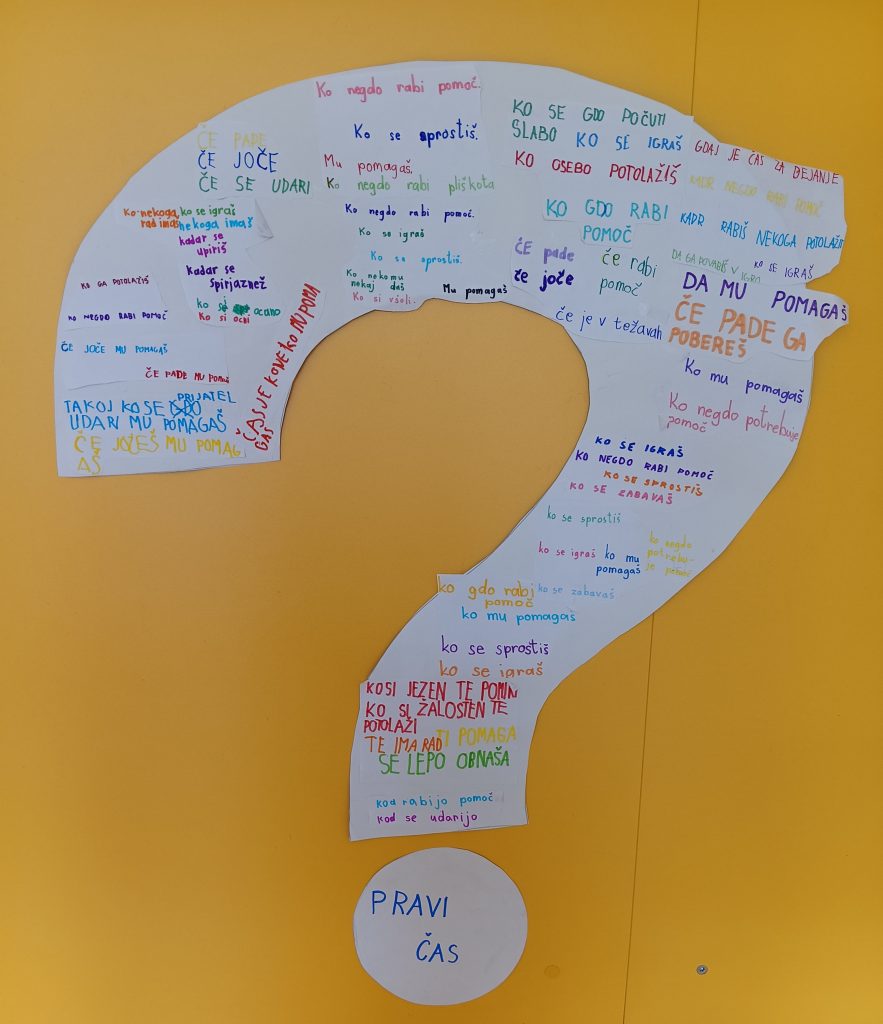 Ko negdo rabi pomoč.
Ko se sprostiš.
Mu pomagaš.
Ko negdo rabi pliškota
Ko negdo rabi pomoč.
Ko se igraš
Ko se sprostiš.
Ko nekomu
nekaj daš
Ko si všeli.
Mu pomagaš
ČE PADE
ČE JOČE
ČE SE UDARI
Ko nekoga
rad imaš
ko se igraš
nekoga imaš
kadar se
upiriš
kadar se
spirjaznež
ko si ocano
Ko si ocbi
KO GA POTOLAŽIŠ
KO NEGDO RABI POMOČ
ČE JOČE MU POMAGAŠ
ČE PADE MU POMOŠ
PRIJATEL
TAKOJ KO SE
UDARI MU POMAGAŠ
ČE JOČEŠ MU POMAG
AŠ
ČAS JE KO NEKOMU POMA
GAŠ
KO SE GDO POČUTI
SLABO KO SE IGRAŠ
KO OSEBO POTOLAŽIŠ
KO GDO RABI
POMOČ
GDAJ JE ČAS ZA DEJANJE
KADR NEGDO RABI POMOČ
KADR RABIŠ NEKOGA POTOLAŽIT
DA GA POVABIŠ V IGRO
KO SE IGRAŠ
DA MU POMAGAŠ
ČE PADE GA
POBEREŠ
če pade
če joče
če rabi
pomoč
če je v težavah
Ko mu pomagaš
Ko negdo potrebuje
pomoč
KO SE IGRAŠ
KO NEGDO RABI POMOČ
KO SE SPROSTIŠ
KO SE ZABAVAŠ
ko se sprostiš
ko se igraš
ko mu
pomagaš
ko negdo
potrebu-
je
ko se zabavaš
ko gdo rabi
pomoč
ko mu pomagaš
ko se sprostiš
ko se igraš
KO SI JEZEN TE
KO SI ŽALOSTEN TE
POTOLAŽI
TE IMA RAD
TI POMAGA
SE LEPO OBNAŠA
kod rabijo pomoč
kod se udarijo
PRAVI
ČAS